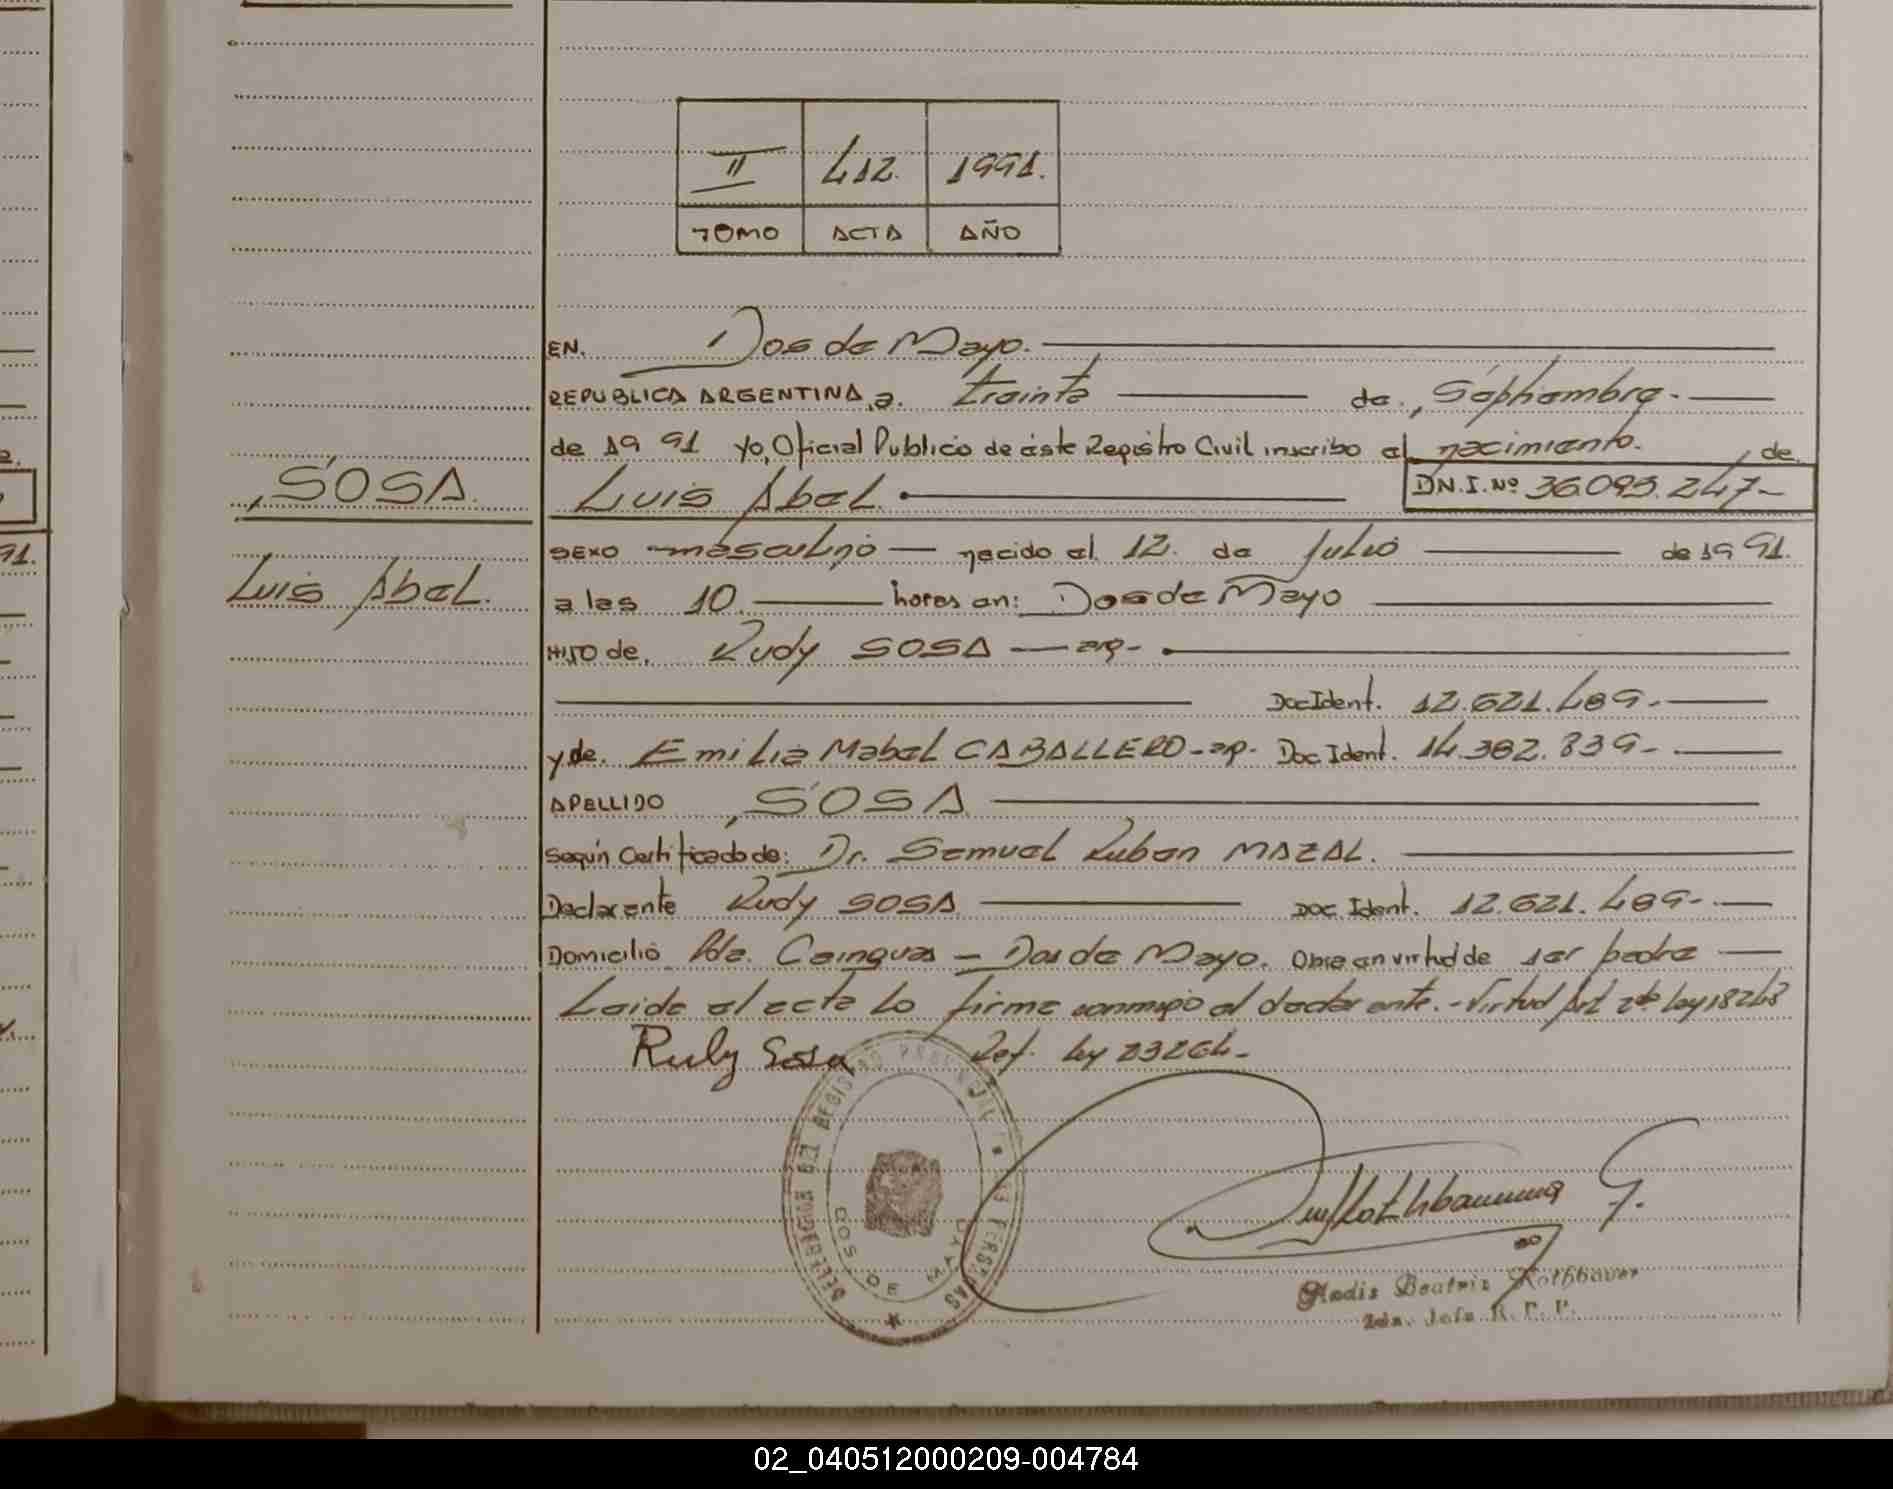 II 412. 1991.
TOMO ACTA AÑO
EN. Dos de Mayo.
REPUBLICA ARGENTINA, a. treinta de, Septiembre.
de 19 91 yo, Oficial Publico de éste Registro Civil inscribo el nacimiento. de
SOSA. Luis Abel. D.N.I. Nº 36.093.247-
SEXO masculino nacido el 12. de Julio de 19 91.
Luis Abel. a las 10 horas en: Dos de Mayo
HIJO de. Rudy SOSA arg-
Doc Ident. 12.621.489.-
y de. Emilia Mabel CABALLERO-arg. Doc Ident. 14.382.839-
APELLIDO SOSA
Según Certificado de: Dr. Samuel Ruben MAZAL.
Declarante Rudy SOSA Doc Ident. 12.621.489-
Domicilio Pde. Cainguas - Dos de Mayo. Obra en virtud de ser padre
Leida el acta la firma conmigo el declarante.-Virtud Art 2do ley 18248
Rudy Sosa Ref. ley 23264-
DELEGACION DEL REGISTRO PROVINCIAL DE LAS PERSONAS
DOS DE MAYO
Rothbauer G.
Gladis Beatriz Rothbauer
2da. Jefa R. P. P.
a.
91.
02_040512000209-004784